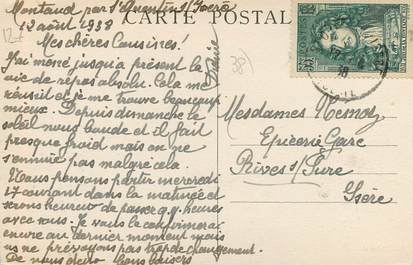 CARTE POSTALE
Montaud par St Quentin s/ Isère
12 août 1938
Mes chères Cousines!
J'ai mené jusqu'à présent la
vie de repos absolu. Cela me
réussit et je me trouve beaucoup
mieux. Depuis dimanche le
soleil nous boude et il fait
presque froid mais on ne
s'ennuie pas malgré cela.
Nous pensons partir mercredi
17 courant dans la matinée et
serons heureux de passer q.q. heures
avec vous. Je vous le confirmerai
encore au dernier moment mais
ns ne prévoyons pas de changement.
De nous deux bons baisers
Mesdames
Epicerie Gare
Rives s/ Fure
Isère
38